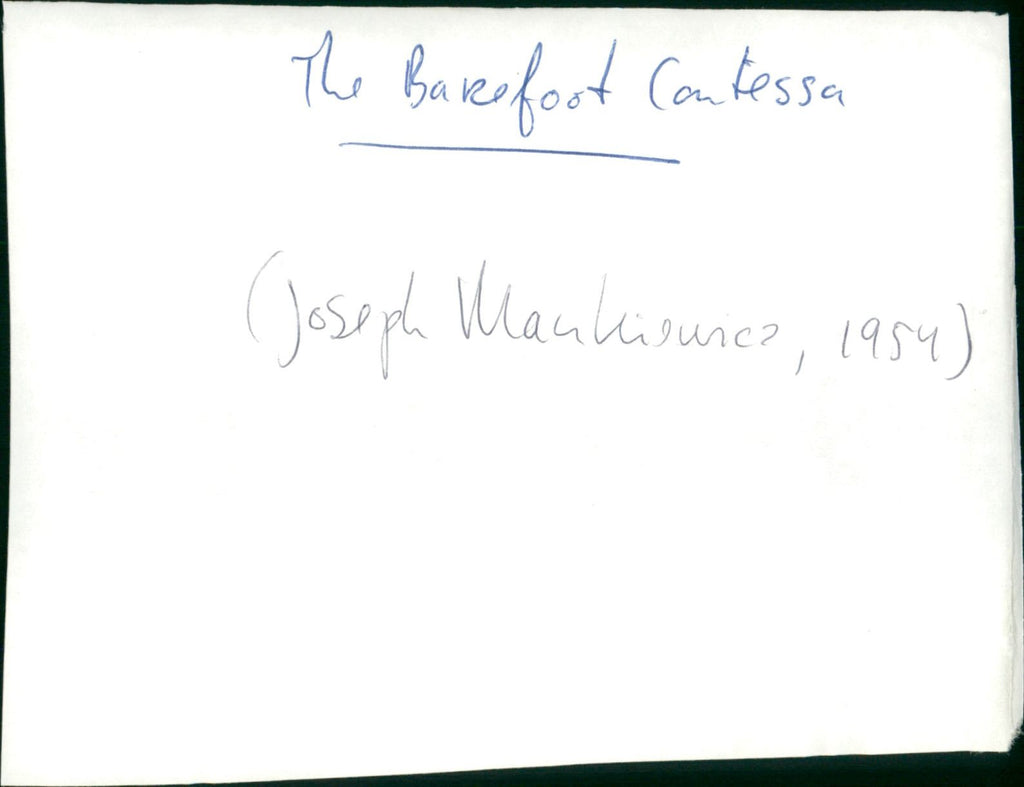 The Barefoot Contessa
(Joseph Mankiewicz, 1954)